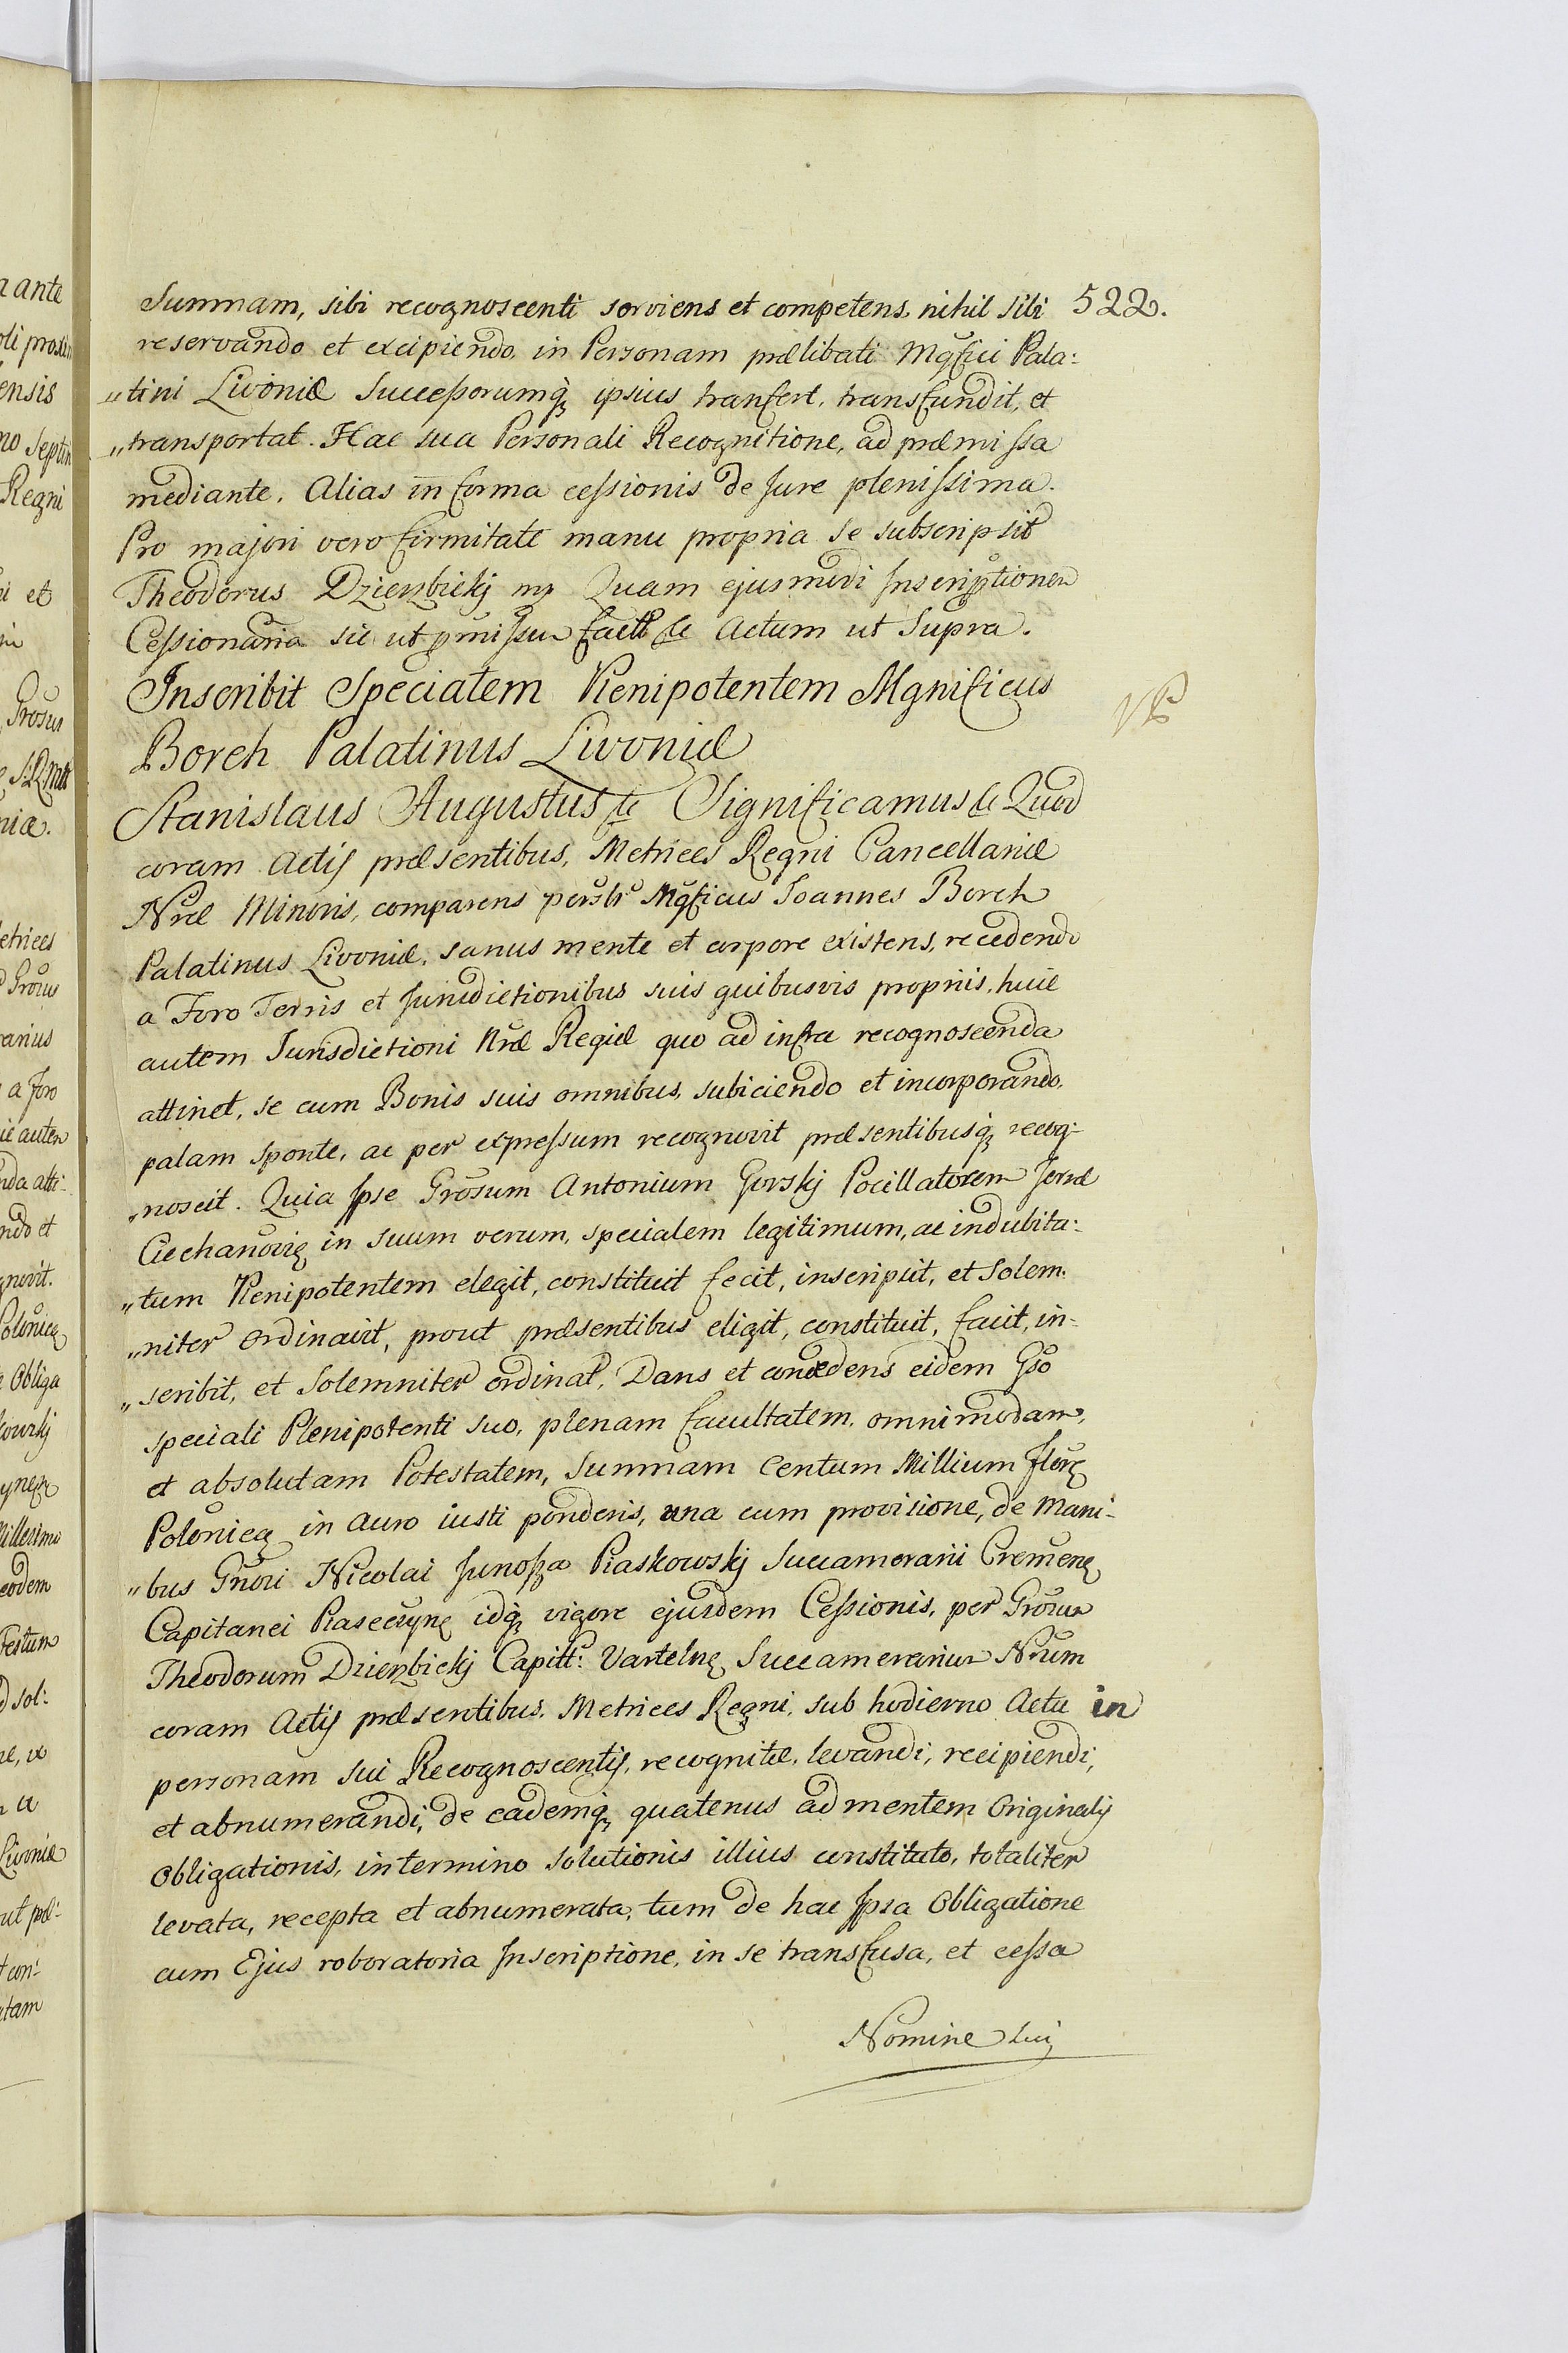 522.
Summam, sibi recognoscenti serviens et competens, nihil sibi
reservando et excipiendo, in Personam prælibati Mgfici Pala:
"tini Livoniæ Successorumq, ipsius transfert, transfundit, et
"transportat. Hac sua Personali Recognitione, ad præmissa
mediante. Alias in forma cessionis de Jure plenissima.
Pro majori vero firmitate manu propria se subscripsit
Theodorus Dzierzbickj mp Quam ejusmodi Inscriptionem
Cessionaria sic ut pmissum Actum ut Supra.
Inscribit Specialem Plenipotentem Mgnificus
Borch Palatinus Livoniæ
Stanislaus Augustus &c Significamus &c Quod
coram Actis præsentibus, Metrices Regni Cancellariæ
Nræ Minoris, comparens persblr Mgficus Joannes Borch
Palatinus Livoniæ, sanus mente et corpore existens, recedendo
a Foro Terris et Jurisdictionibus suis quibusvis propriis, huic
autem Jurisdictioni Nræ Regiæ quo ad infra recognoscenda
attinet, se cum Bonis suis omnibus, subiciendo et incorporando.
palam sponte, ac per expressum recognovit præsentibusq, recog:
"noscit. Quia Ipse Grosum Antonium Gorskj Pocillatorem Terræ
Ciechanovię in suum verum, specialem legitimum, ac indubita:
"tum Plenipotentem elegit, constituit fecit, inscripsit, et Solem:
"niter ordinavit, prout præsentibus eligit, constituit, facit, in-
"scribit, et Solemniter ordinat, Dans et concedens eidem Gso
speciali Plenipotenti suo, plenam facultatem, omnimodam,
et absolutam Potestatem, Summam Centum Millium florę
Polonicą in auro iusti ponderis, una cum provisione, de Mani-
"bus Gnori Nicolai Junosza Piaskowskj Succamerarii Cremenę
Capitanei Piasecynę idq, vigore ejusdem Cessionis, per Grosum
Theodorum Dzierzbickj Capitt: Vartelnę Succamerarium Nrum
coram Actis præsentibus, Metrices Regni, sub hodierno Actu in
personam sui Recognoscentis, recognitæ, levandi, recipiendi,
et abnumerandi, de eademq, quatenus ad mentem Originalis
Obligationis, in termino Solutionis illius constituto, totaliter
levata, recepta et abnumerata, tum de hac Ipsa Obligatione
cum Ejus roboratoria Inscriptione, in se transfusa, et cessa
Nomine Sui